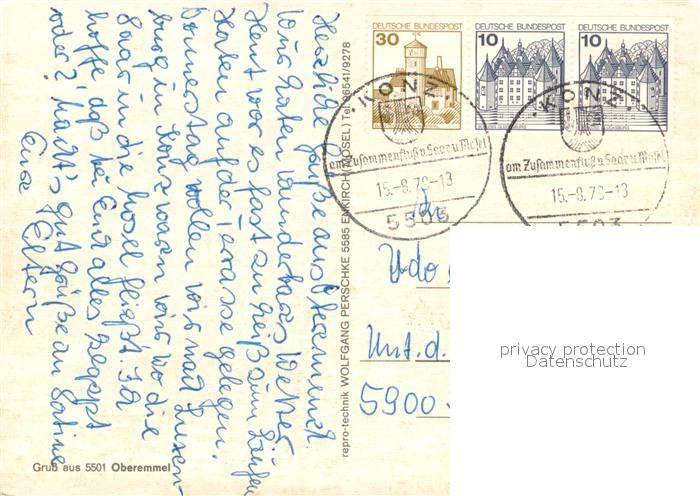 Herzliche Grüße aus Oberemmel.
Wir haben wunderbares Wetter
Heut war es fast zu heiß zum Laufen
Haben auf der Terasse gelegen.
Donnerstag wollen wir nach Luxem-
burg in Konz waren wir wo die
Saar in die Mosel fließt. Ich
hoffe, daß bei Euch alles klappt
oder? Macht's gut Grüße an Sabine
Eure Eltern
Gruß aus 5501 Oberemmel
repro-technik WOLFGANG PERSCHKE 5585 ENKIRCH (MOSEL) Tel. 06541/9278
DEUTSCHE BUNDESPOST
30
DEUTSCHE BUNDESPOST
10
DEUTSCHE BUNDESPOST
10
KONZ
am Zusammenfluß v. Saar u. Mosel
15.-8.78-13
5503
KONZ
am Zusammenfluß v. Saar u. Mosel
15.-8.78-13
5503
An
Udo
Unt. d.
5900
privacy protection
Datenschutz